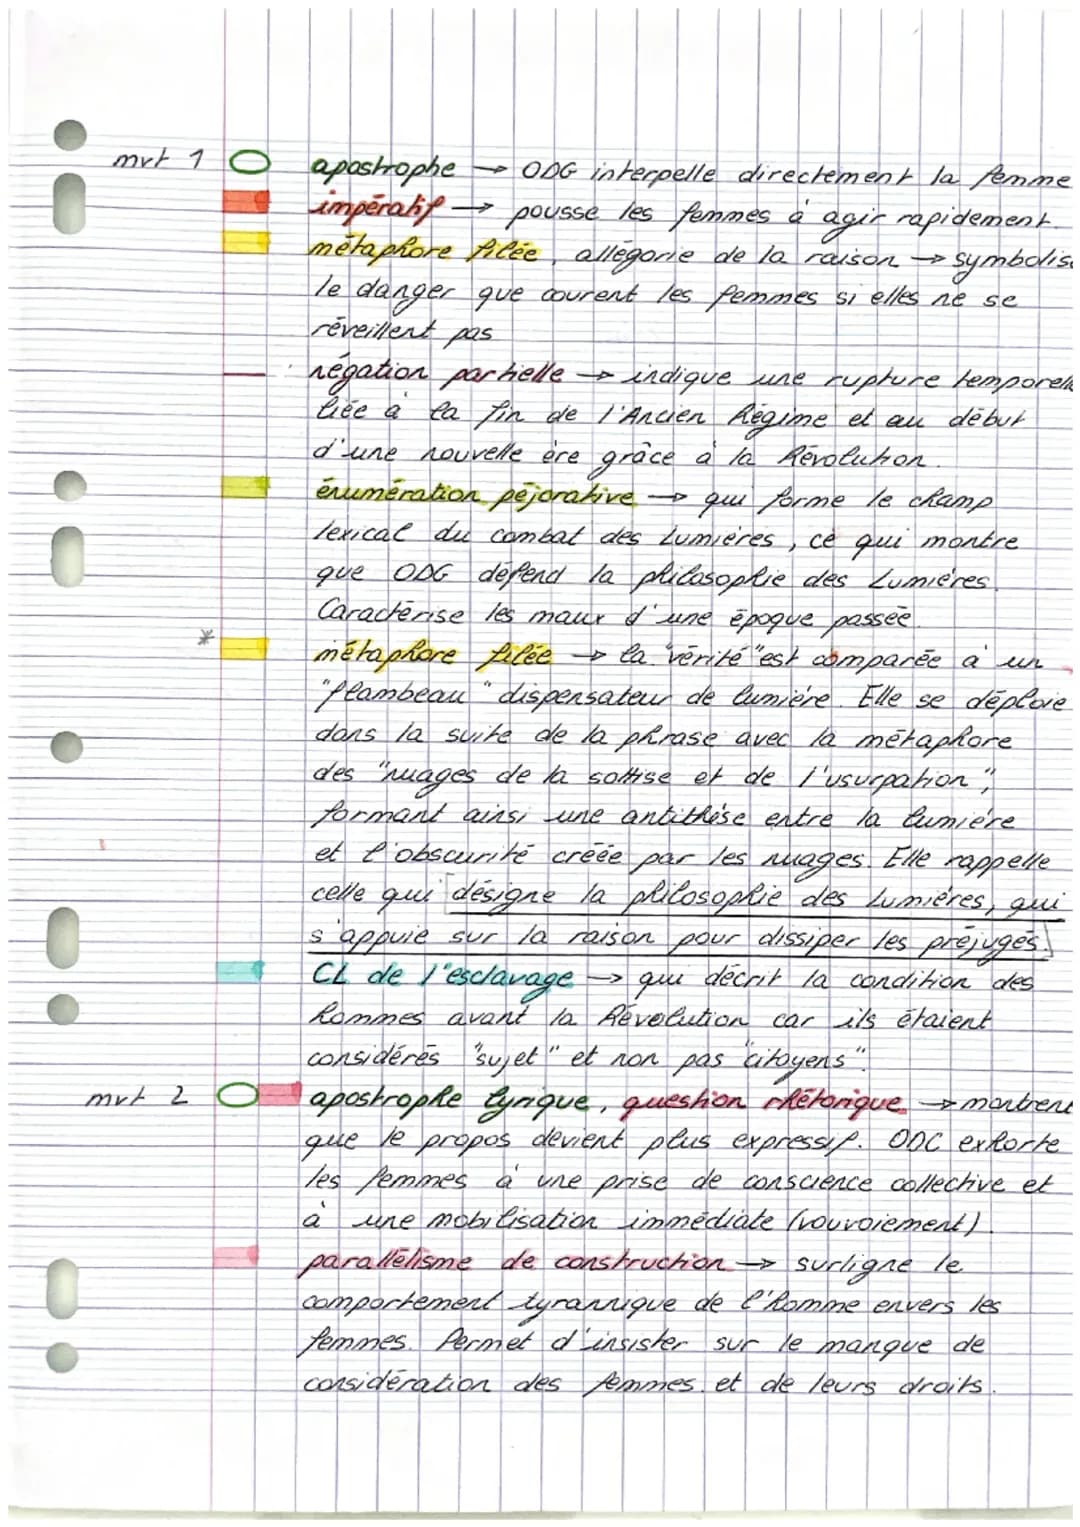 mvt 1 apostrophe → ODG interpelle directement la femme
impératif → pousse les femmes à agir rapidement.
métaphore filée, allégorie de la raison → symbolise
le danger que courent les femmes si elles ne se
réveillent pas
négation partielle → indique une rupture temporelle
liée à la fin de l'Ancien Régime et au début
d'une nouvelle ère grâce à la Révolution.
énumération péjorative → qui forme le champ
lexical du combat des Lumières, ce qui montre
que ODG défend la philosophie des Lumières.
Caractérise les maux d'une époque passée.
* métaphore filée → la "vérité" est comparée à un
"flambeau" dispensateur de lumière. Elle se déploie
dans la suite de la phrase avec la métaphore
des "nuages de la sottise et de l'usurpation",
formant ainsi une antithèse entre la lumière
et l'obscurité créée par les nuages. Elle rappelle
celle qui [désigne la philosophie des Lumières, qui
s'appuie sur la raison pour dissiper les préjugés.]
CL de l'esclavage → qui décrit la condition des
hommes avant la Révolution car ils étaient
considérés "sujet" et non pas "citoyens".
mvt 2 apostrophe lyrique, question rhétorique → montrent
que le propos devient plus expressif. ODC exhorte
les femmes à une prise de conscience collective et
à une mobilisation immédiate (vouvoiement).
parallélisme de construction → surligne le
comportement tyrannique de l'homme envers les
femmes. Permet d'insister sur le manque de
considération des femmes et de leurs droits.